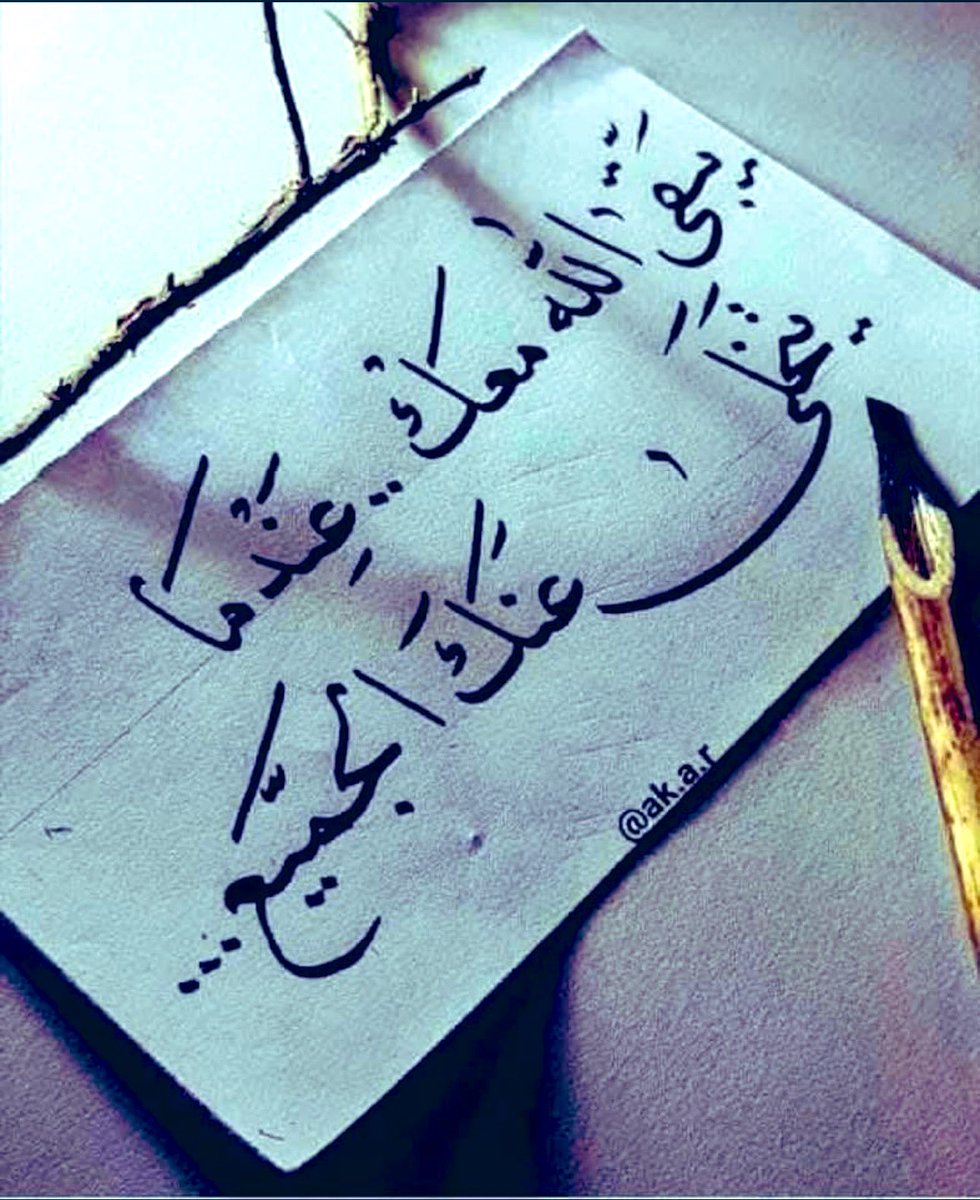 يبقى الله معك.. عندما
يتخلى عنك الجميع...
@ak.a.r